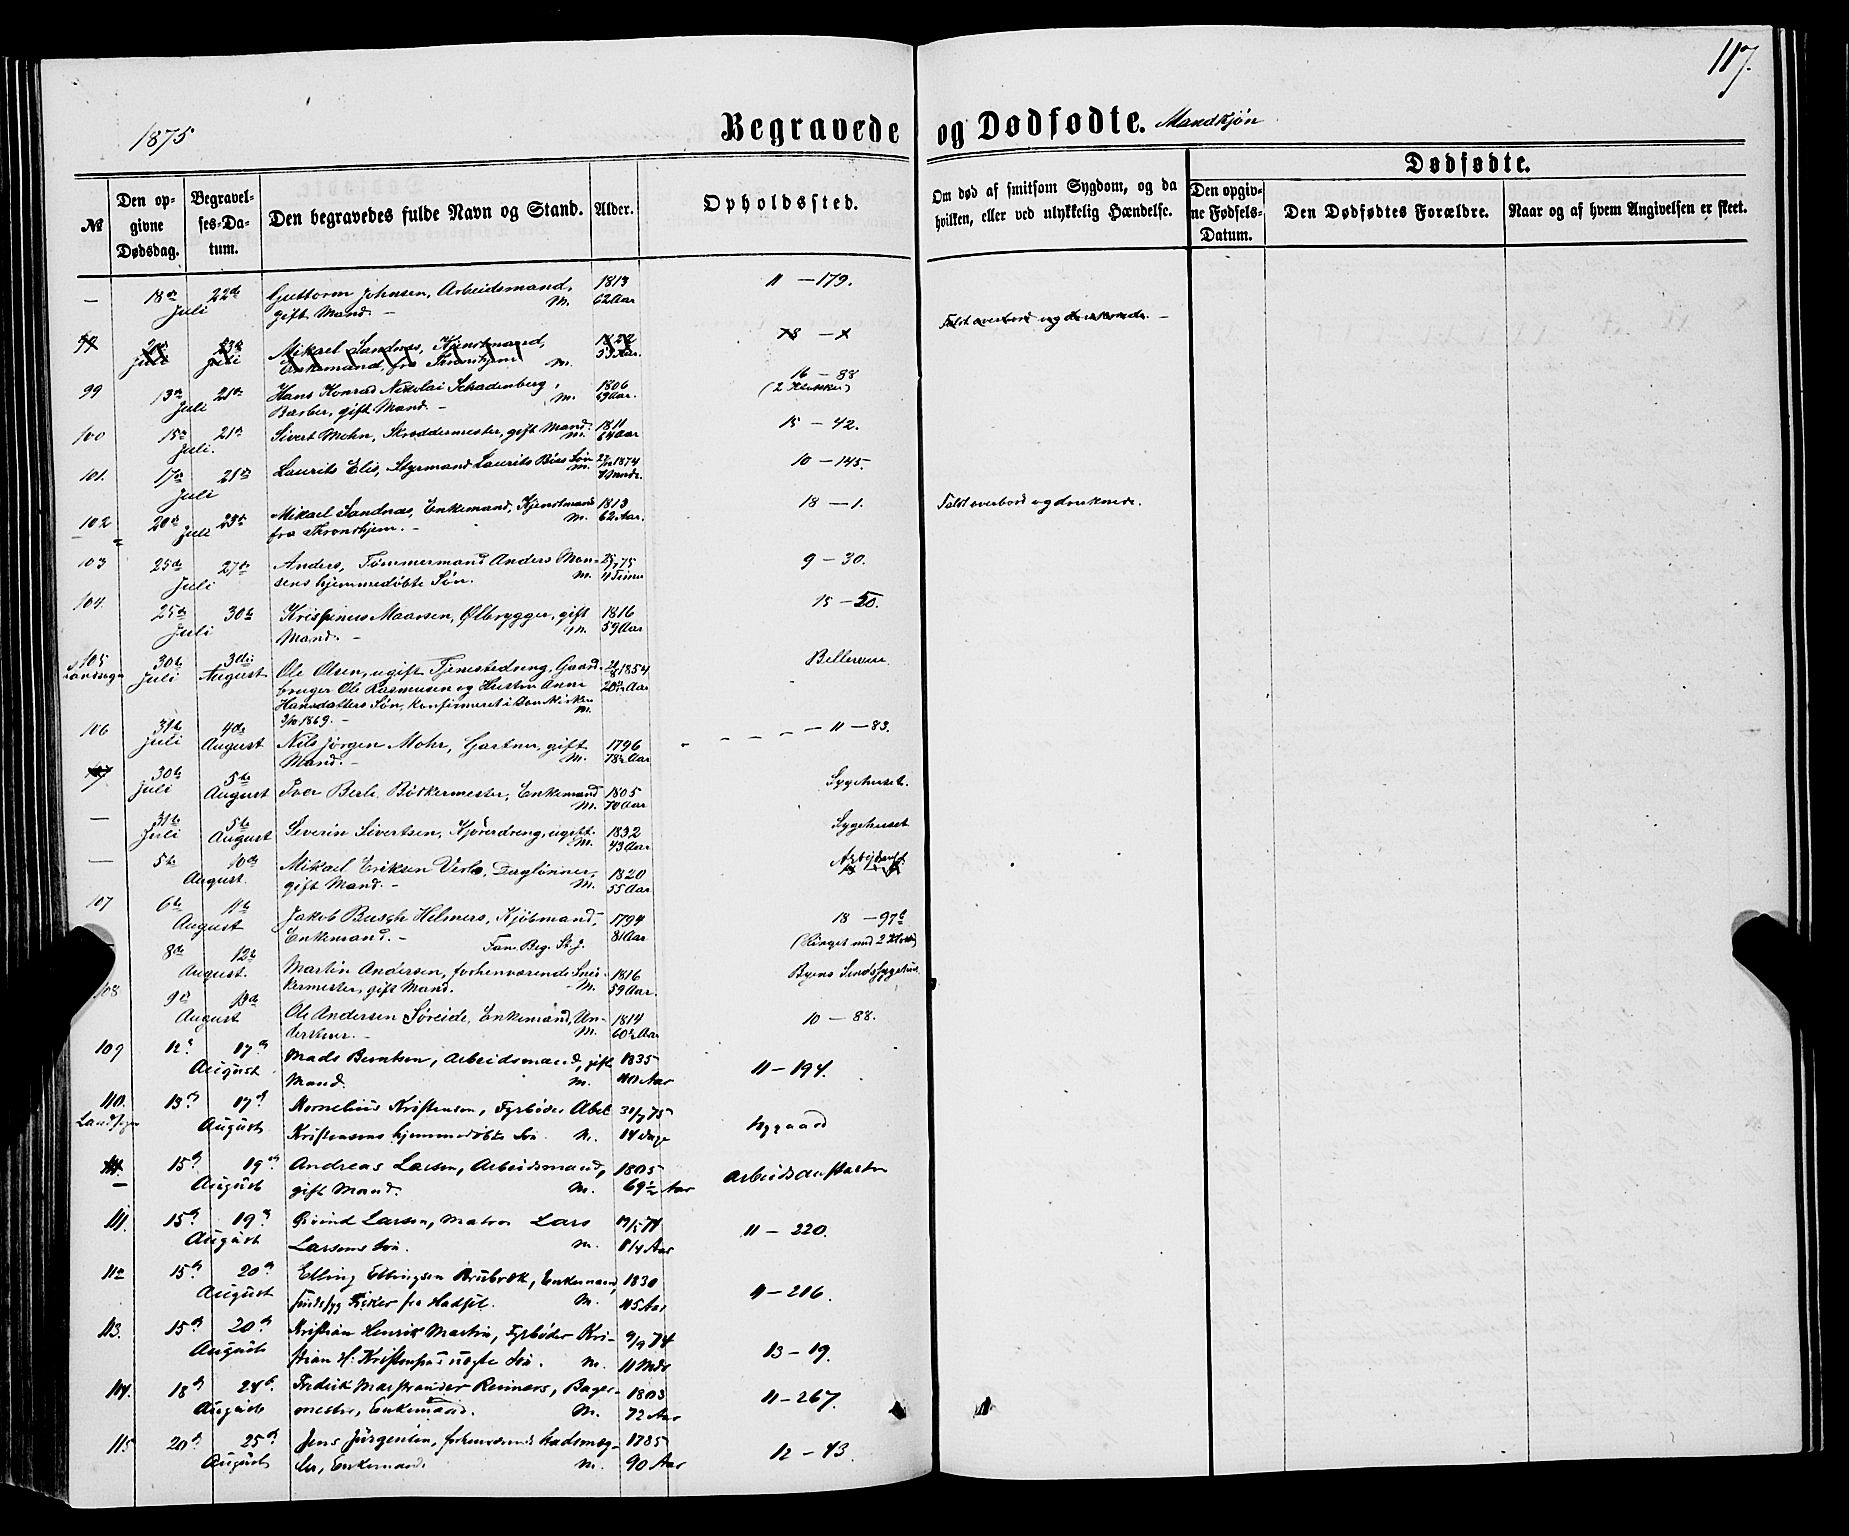 117.
1875
Begravede og Dødfødte. Mandkjøn
Dødfødte.
№
Den opgivne Dødsdag.
Begravelses-Datum.
Den begravedes fulde Navn og Stand.
Alder.
Opholdssted.
Om død af smitsom Sygdom, og da hvilken, eller ved ulykkelig Hændelse.
Den opgivne Fødsels-Datum.
Den Dødfødtes Forældre.
Naar og af hvem Angivelsen er skeet.
— 18de 22de Guttorm Johnsen, Arbeidsmand, 1813 11 — 179.
Juli gift Mand. — M. 62 Aar
Mikael Sandnæs, Kjendtmand, Faldt overbord og druknede. —
Juli Juli Enkemand, fra Throndhjem M.
99 13de 21de Hans Konrad Nikolai Schadenberg, 1806 16 — 88
Juli Barber, gift Mand. — M. 69 Aar. (2 Klokker)
100 15de 21de Sivert Mohn, Skræddermester, gift Mand. 1811 15 — 42.
Juli. M. 64 Aar
101. 17de 21de Laurits Elis, Styrmand Laurits Søn 1874 10 — 145.
Juli M.
102 20de 23de Mikael Sandnæs, Enkemand, Kjendtmand 1813 18 — 1. Faldt overbord og druknede.
Juli fra Throndhjem. — M. 62 Aar.
103 25de 27de Anders, Tømmermand Anders Mon- 25/7 75 9 — 30.
Juli sens hjemmedøbte Søn. M. 4 Timer
104. 25de 30te Krispinus Maarsen, Ølbrygger, gift 1816 15 — 50.
Juli Mand. — M. 59 Aar
105 30te 3die Ole Olsen, ugift Tjenestedreng, Gaard- 1854
Landsogn Juli August bruger Ole Rasmusen og Hustru Anne
Hansdatters Søn, konfirmeret i Domkirken
M.
3/10 1869. —
106 31te 4de Nils Jørgen Mohr, Gartner, gift 1796 — 11 — 83.
Juli August Mand. — M. 78½ Aar
30te 5te Iver Berle, Bødkermester, Enkemand 1805 Sygehuset.
Juli August M. 70 Aar
— 31te 5te Severin Sivertsen, Kjøredreng, ugift 1832 Sygehuset
Juli August M. 43 Aar
— 5te 10de Mikael Eriksen Verlo, Daglønner, 1820
August. gift Mand. — M. 55 Aar
107 6te 11te Jakob Busch Helmers, Kjøbmand, 1794 18 — 97
August Enkemand. — Fam. Beg. St. J. 81 Aar (Ringet med 2 Klokker)
8de 12te Martin Andersen, forhenværende Sned- 1816 Byens Sindssygehus.
August. kermester, gift Mand. M. 59 Aar.
108 9de 13de Ole Andersen Søreide, Enkemand, 1814 10 — 88.
August M. 60½ Aar
109 12te 17de Mads Berntsen, Arbeidsmand, gift 1835 11 — 194.
August Mand. M. 40 Aar
110. 13de 17de Kornelius Kristensen, Fyrbøder Abel 31/7 75 Nygaard
Landsogn August Kristensens hjemmedøbte Søn. M. 14 Dage
15de 19de Andreas Larsen, Arbeidsmand, 1805 Arbeidsanstalten
August gift Mand. M. 69½ Aar
111. 15de 19de Larsen, Matros Lars 11 — 220.
August Larsens Søn. M.
112 15de 20de Elling Ellingsen Brubræk, Enkemand, 1830 11 — 216.
August Sindssyg Fisker fra Hadsel. M. 45 Aar
113. 15de 20de Kristian Henrik Martin, Fyrbøder Kri- 9/9 74 13 — 19.
August stian H. Kristensens uægte Søn. M. 11 Mdr
114. 18de 24de Fredrik Marstrander Reimers, Bager- 1803 11 — 267.
August mester, Enkemand. M. 72 Aar
115 20de 25de Jens Jürgensen, forhenværende Stadsmæg- 1785 12 — 43.
August ler, Enkemand. M. 90 Aar